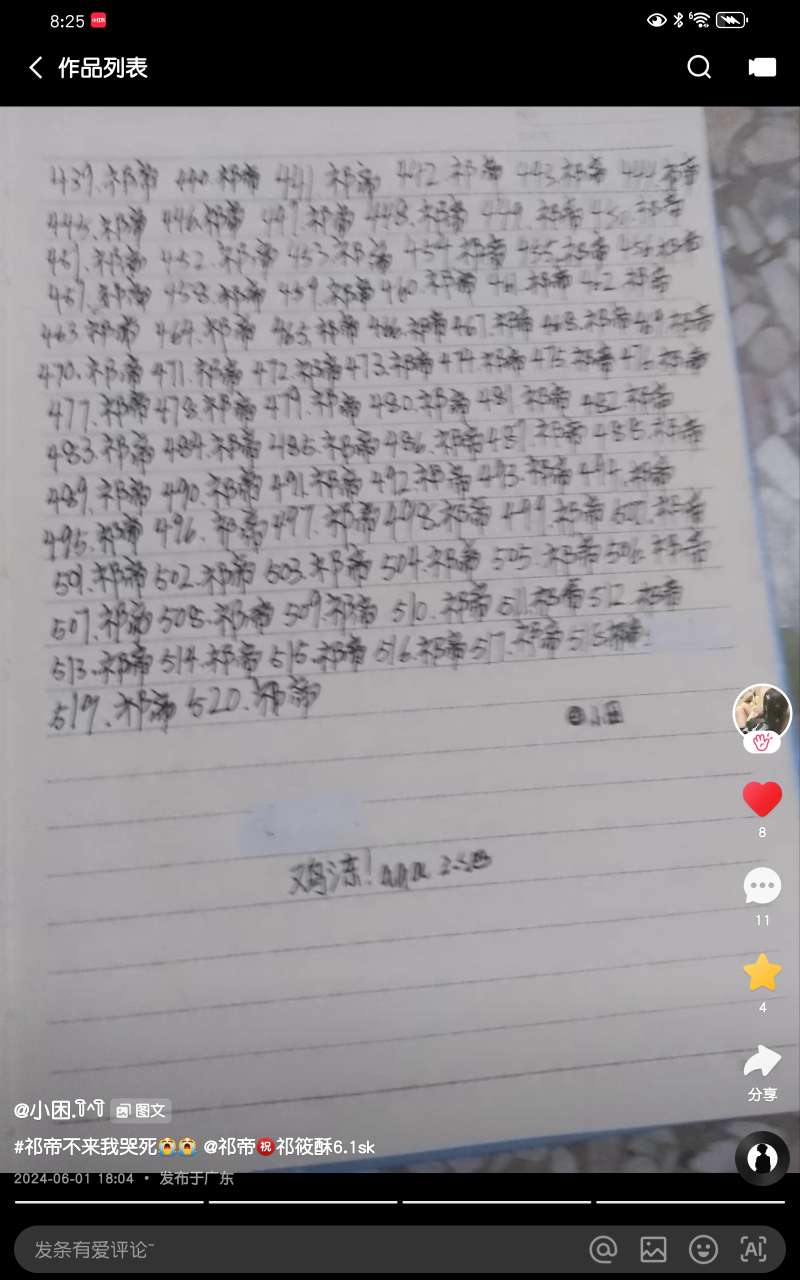 8:25
作品列表
439.祁帝 440.祁帝 441.祁帝 442.祁帝 443.祁帝 444.祁帝
445.祁帝 446.祁帝 447.祁帝 448.祁帝 449.祁帝 450.祁帝
451.祁帝 452.祁帝 453.祁帝 454.祁帝 455.祁帝 456.祁帝
457.祁帝 458.祁帝 459.祁帝 460.祁帝 461.祁帝 462.祁帝
463.祁帝 464.祁帝 465.祁帝 466.祁帝 467.祁帝 468.祁帝 469.祁帝
470.祁帝 471.祁帝 472.祁帝 473.祁帝 474.祁帝 475.祁帝 476.祁帝
477.祁帝 478.祁帝 479.祁帝 480.祁帝 481.祁帝 482.祁帝
483.祁帝 484.祁帝 485.祁帝 486.祁帝 487.祁帝 488.祁帝
489.祁帝 490.祁帝 491.祁帝 492.祁帝 493.祁帝 494.祁帝
495.祁帝 496.祁帝 497.祁帝 498.祁帝 499.祁帝 500.祁帝
501.祁帝 502.祁帝 503.祁帝 504.祁帝 505.祁帝 506.祁帝
507.祁帝 508.祁帝 509.祁帝 510.祁帝 511.祁帝 512.祁帝
513.祁帝 514.祁帝 515.祁帝 516.祁帝 517.祁帝 518.祁帝
519.祁帝 520.祁帝
@小困
鸡冻!
8
11
4
分享
@小困.ꈍ^ꈍ 图文
#祁帝不来我哭死😭😭 @祁帝㊗️祁筱酥6.1sk
2024-06-01 18:04 · 发布于广东
发条有爱评论~